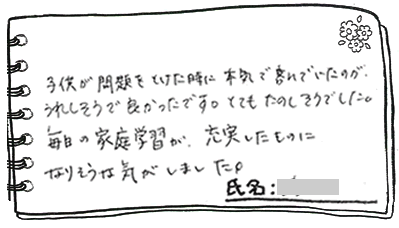 子供が問題をとけた時に本気で喜んでいたのが、
うれしそうで良かったです。とてもたのしそうでした。
毎日の家庭学習が、充実したものに
なりそうな気がしました。
氏名: